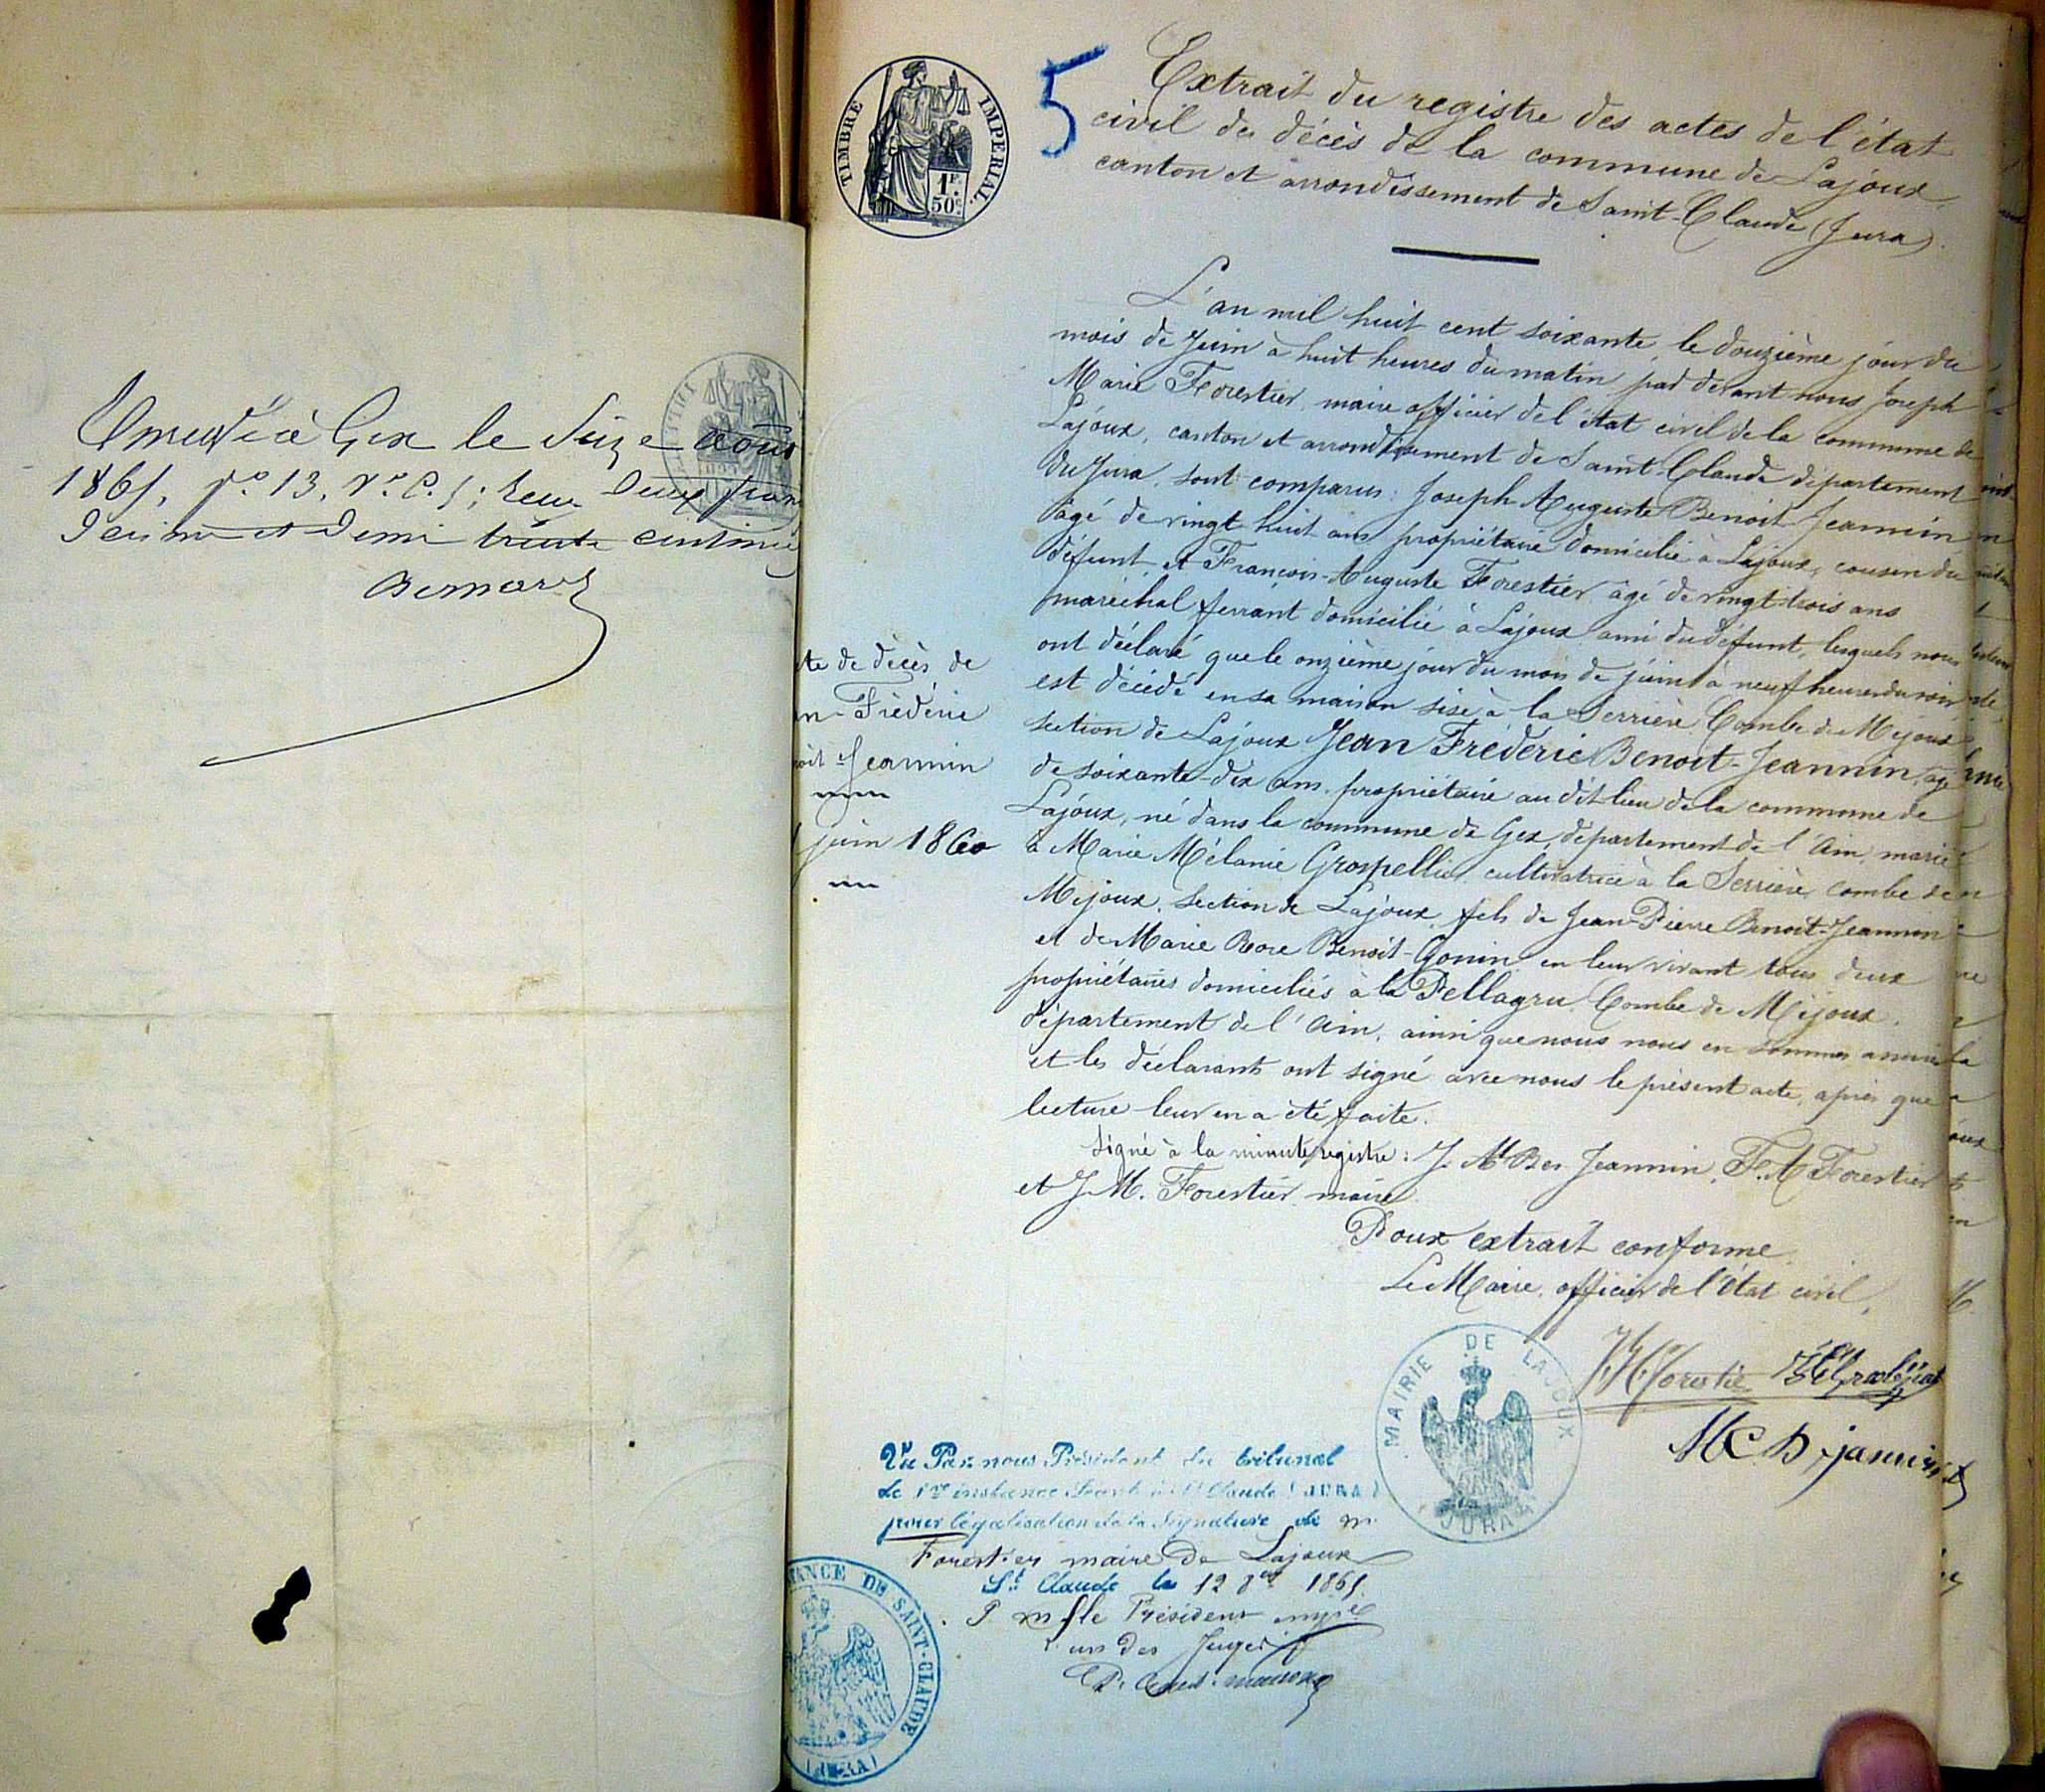 Enregistré à Gex le seize août
1861, f° 13, V° C. 1; reçu deux francs
décime et demi trente centimes
Bernard
TIMBRE IMPERIAL.
1F.
50C.
5
Extrait du registre des actes de l'état
civil des décès de la commune de Lajoux,
canton et arrondissement de Saint-Claude (Jura).
L'an mil huit cent soixante, le douzième jour du
mois de Juin à huit heures du matin, par devant nous Joseph
Marie Forestier, maire officier de l'état civil de la commune de
Lajoux, canton et arrondissement de Saint-Claude département
du Jura, sont comparus: Joseph Auguste Benoit Jeannin
âgé de vingt huit ans propriétaire domicilié à Lajoux, cousin du
défunt, et François-Auguste Forestier âgé de vingt-trois ans
maréchal ferrant domicilié à Lajoux ami du défunt, lesquels nous
ont déclaré que le onzième jour du mois de juin à neuf heures du soir,
est décédé en sa maison sise à la Serrière Combe de Mijoux
section de Lajoux Jean Fréderic Benoit-Jeannin, âgé
de soixante-dix ans, propriétaire au dit lieu de la commune de
Lajoux, né dans la commune de Gex, département de l'Ain, marié
à Marie Mélanie Grospellier cultivatrice à la Serrière, combe de
Mijoux, section de Lajoux, fils de Jean-Pierre Benoit-Jeannin
et de Marie Rose Benoit-Gonin en leur vivant tous deux
propriétaires domiciliés à la Pellagru Combe de Mijoux,
département de l'Ain, ainsi que nous nous en sommes assuré
et les déclarants ont signé avec nous le présent acte, après que
lecture leur en a été faite.
Signé à la minute registre: J. At Ben Jeannin, F. A Forestier
et J. M. Forestier maire.
Pour extrait conforme
Le Maire, officier de l'état civil,
te de décès de
n-Fréderic
oit-Jeannin
juin 1860
JM Forestier
MAIRIE DE LAJOUX
JURA
Vu Par nous Président du tribunal
de 1re instance séant à St Claude (JURA)
pour légalisation de la Signature de m.
Forestier maire de Lajoux
St. Claude le 12 8bre 1861.
P m. le Président empé
un des Juges
TANCE DE SAINT-CLAUDE
(JURA)